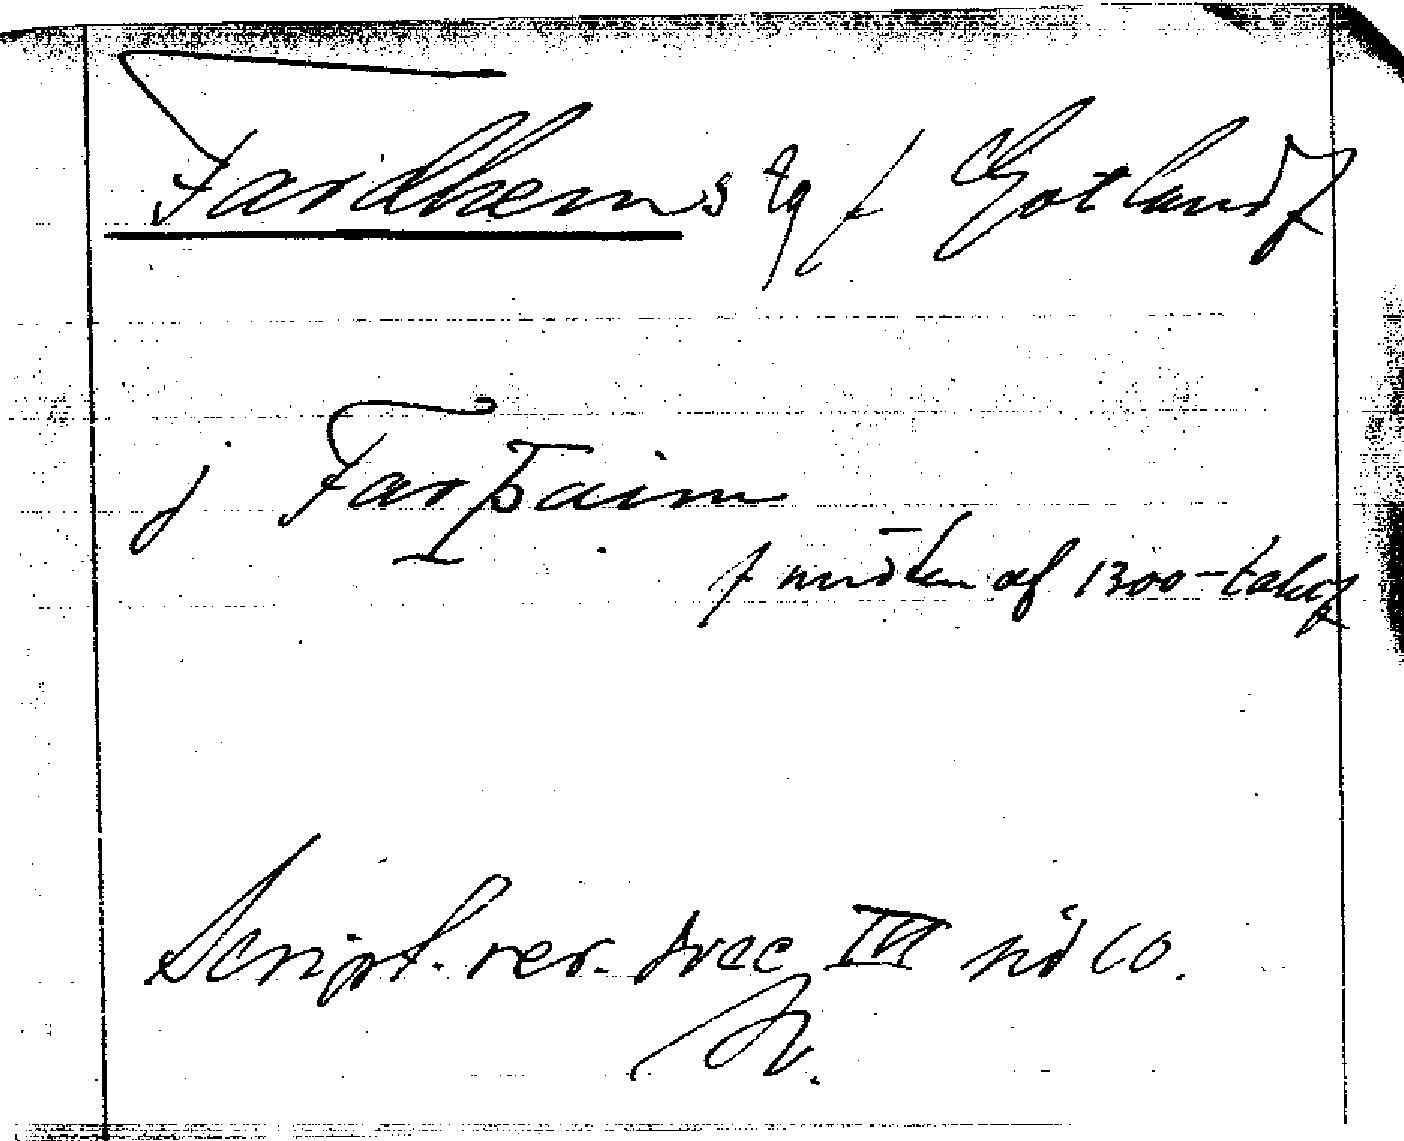 Fardhem s:n / Gotland /
i Farþaim
/ midten af 1300-talet /
Script. rer. svec III sid 60.